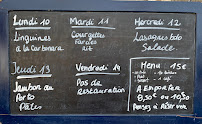 Lundi 10
Linguines
à la Carbonara
Mardi 11
Courgettes
Farcies
Riz
Mercredi 12
Lasagnes bolo
Salade.
Jeudi 13
Jambon au
Porto
Pâtes
Vendredi 14
Pas de
Restauration
Menu 15€
A Emporter
8,50€ ou 10,50
Pensez à Réserver